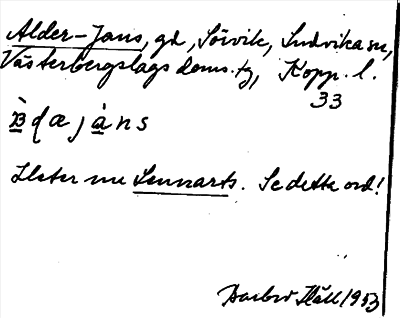 Alder-Jans, gd, Sörvik, Ludvika sn,
Västerbergslags doms.tg, Kopp. l.
33
Heter nu Lennarts. Se detta ord!
Barbro Häll 1953